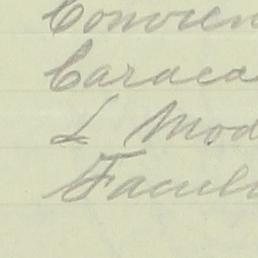 Convien
Caraca
L Mod
Facul